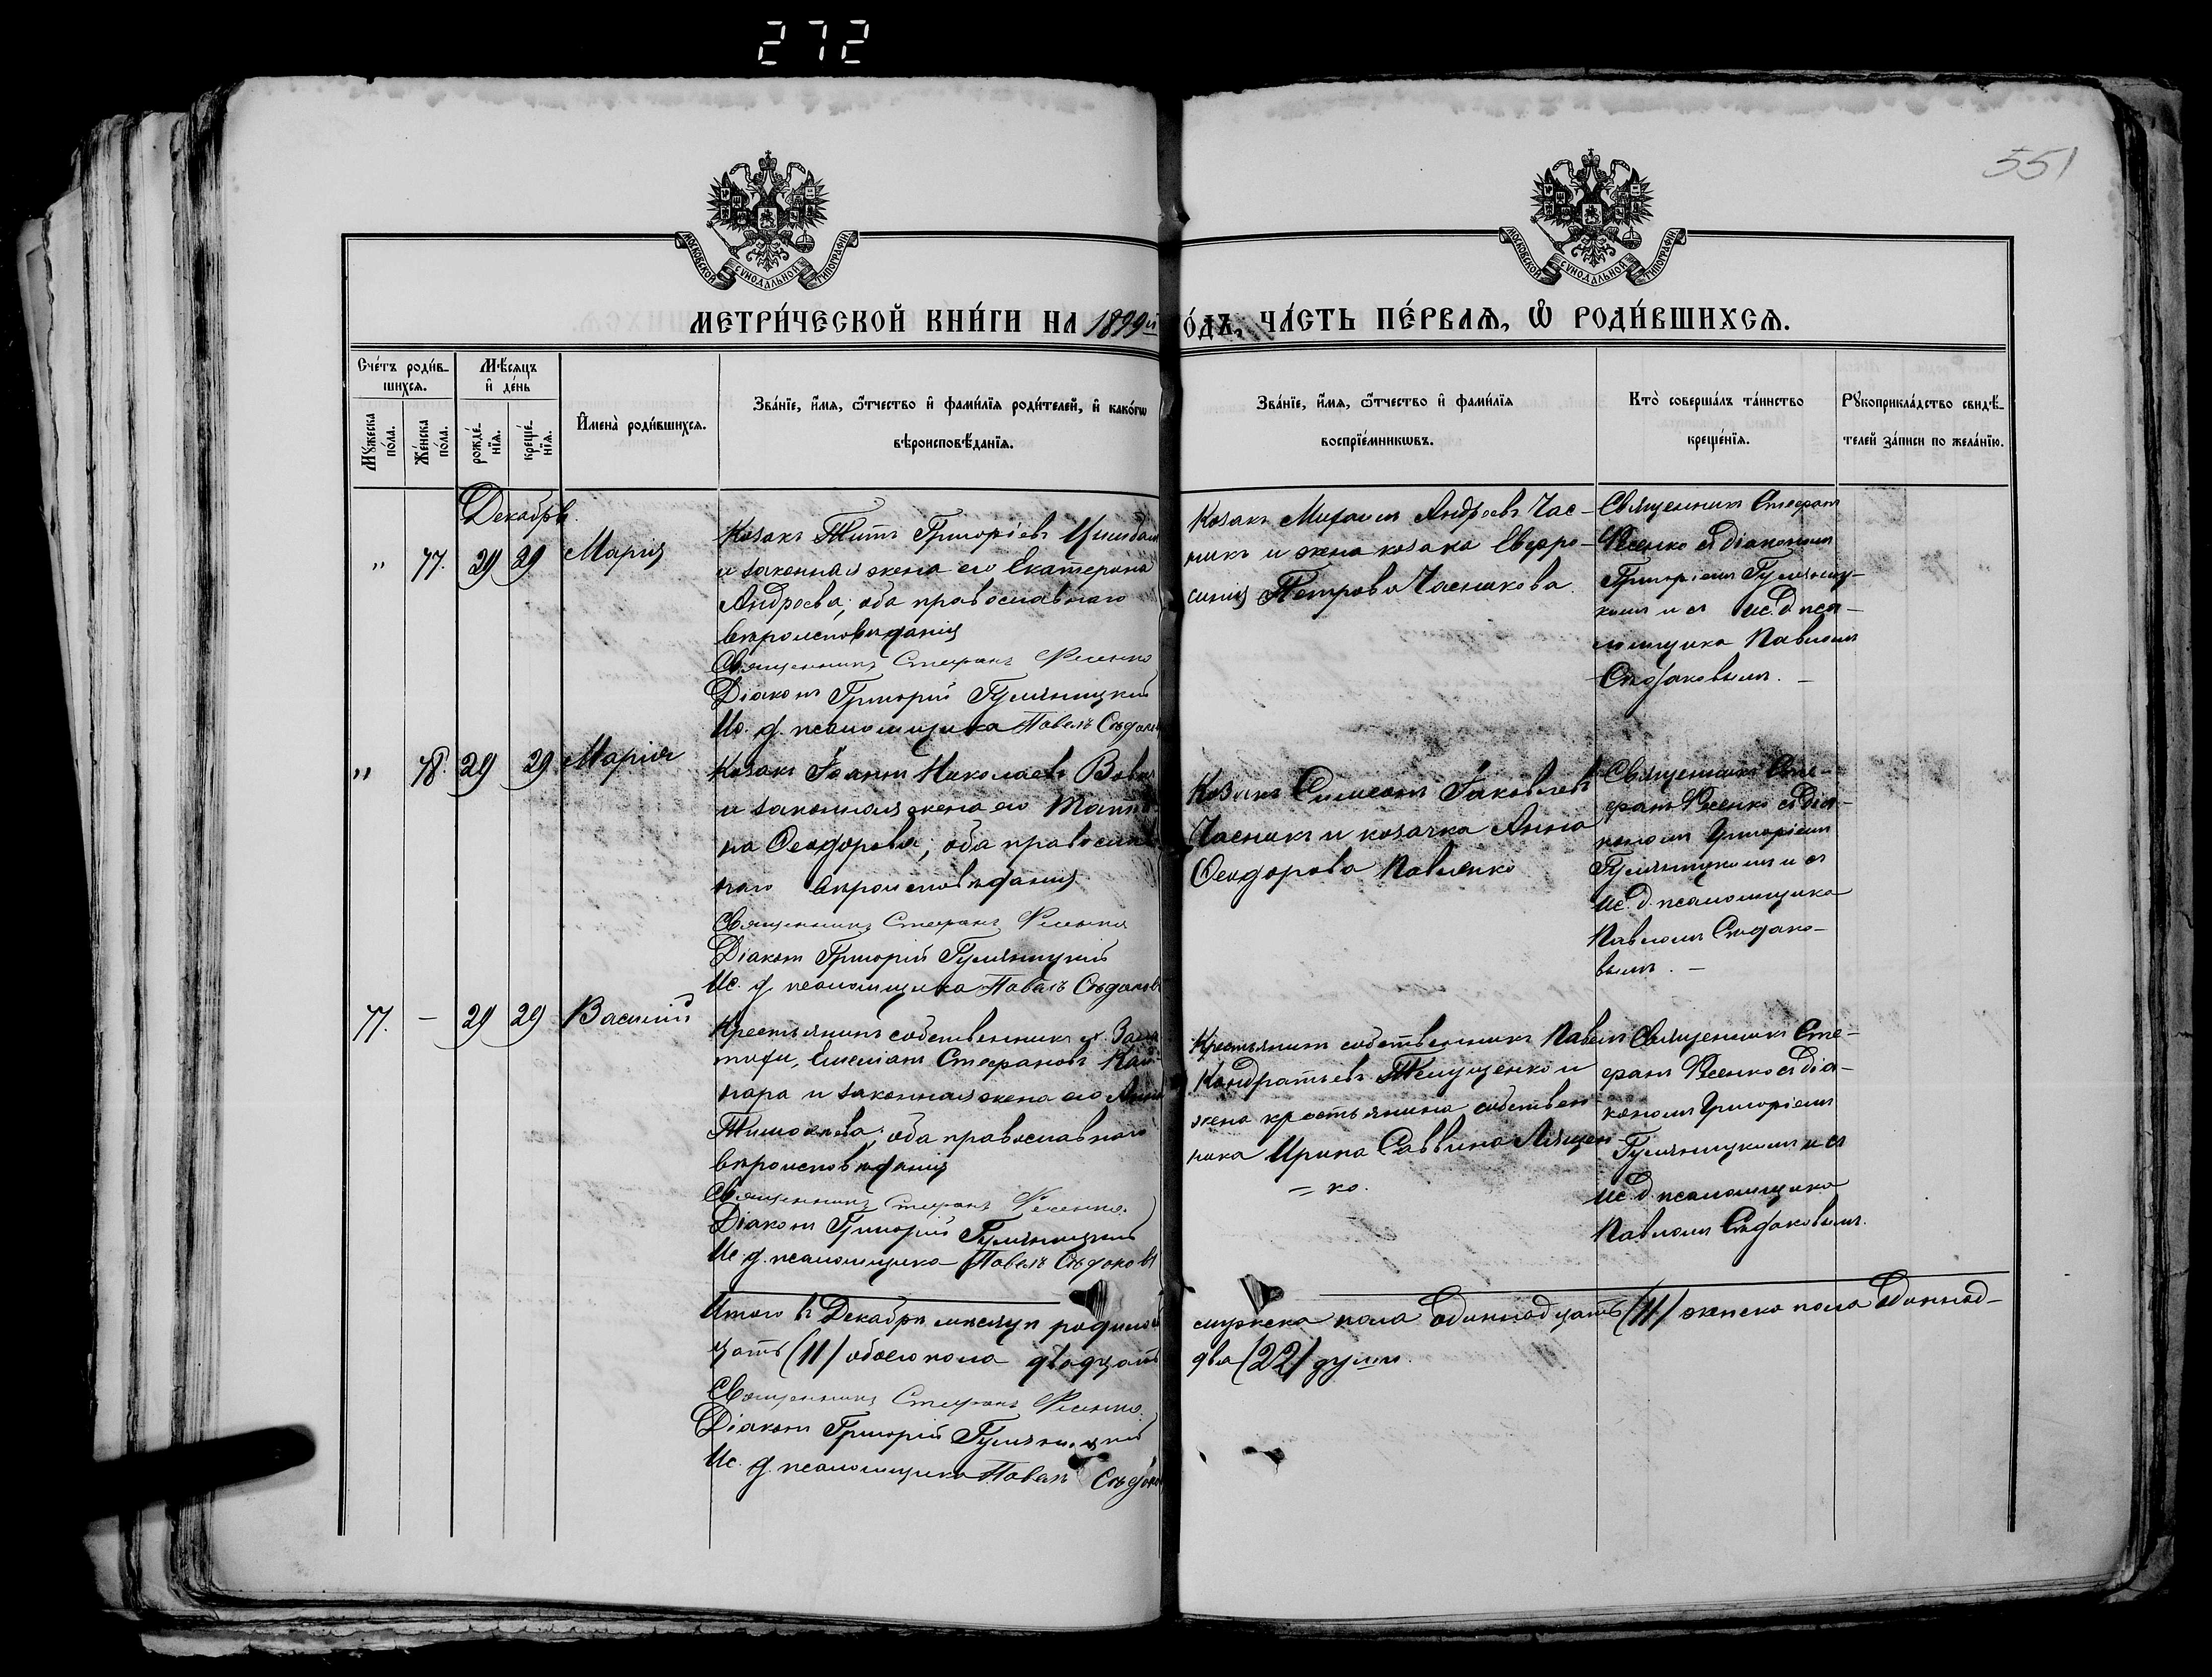 272
551
МОСКОВСКОЙ СѴНОДАЛЬНОЙ ТИПОГРАФІИ
МОСКОВСКОЙ СѴНОДАЛЬНОЙ ТИПОГРАФІИ
МЕТРИ́ЧЕСКОЙ КНИ́ГИ НА 1899й
О́ДЪ, ЧА́СТЬ ПЕ́РВАѦ, Ѡ РОДИ́ВШИХСѦ.
Сче́тъ роди́в-
шихсѧ.
Мꙋжеска по́ла.
Же́нска по́ла.
Мѣ́сѧцъ
и де́нь
рожде́-
нїѧ.
креще́-
нїѧ.
И҆мена̀ роди́вшихсѧ.
Зва́нїе, и҆́мѧ, ѻ҆́тчество и҆ фами́лїѧ роди́телей, и҆ како́гѡ
вѣроисповѣ́данїѧ.
Зва́нїе, и҆́мѧ, ѻ҆́тчество и҆ фами́лїѧ
воспрїе́мникѡвъ.
Кто̀ соверша́лъ та́инство
креще́нїѧ.
Рꙋкоприкла́дство свидѣ́-
телей за́писи по жела́нїю.
Декабрь.
" 77. 29 29 Марія
Козакъ Титъ Григоріевъ
и законная жена его Екатерина
Андреева; оба православнаго
вѣроисповѣданія
Священникъ Стефанъ Фесенко
Діаконъ Григорій Гуляницкій
Ис. д. псаломщика Павелъ Сѣдаковъ
Козакъ Михаилъ Андреевъ Час-
никъ и жена козака Евфро-
синія Петрова Часникова.
Священникъ Стефанъ
Фесенко съ діакономъ
Григоріемъ Гуляниц-
кимъ и съ ис. д. пса-
ломщика Павломъ
Сѣдаковымъ. –
" 78. 29 29 Марія
Козакъ Іоаннъ Николаевъ
и законная жена его
на Ѳеодорова; оба православ
наго вѣроисповѣданія
Священникъ Стефанъ Фесенко
Діаконъ Григорій Гуляницкій
Ис. д. псаломщика Павелъ Сѣдаковъ
Козакъ Симеонъ Іаковлевъ
Часникъ и козачка Анна
Ѳеодорова Павленко
Священникъ Сте-
фанъ Фесенко съ діа-
кономъ Григоріемъ
Гуляницкимъ и съ
ис. д. псаломщика
Павломъ Сѣдако-
вымъ. –
77. – 29 29 Василій
Крестьянинъ собственникъ
Емеліанъ Стефановъ
и законная жена его Анна
Тимоѳеева; оба православнаго
вѣроисповѣданія
Священникъ Стефанъ Фесенко.
Діаконъ Григорій Гуляницкій
Ис. д. псаломщика Павелъ Сѣдаковъ
Крестьянинъ собственникъ Павелъ
Кондратьевъ и
жена крестьянина собствен-
ника Ирина Саввина Лящен
= ко.
Священникъ Сте-
фанъ Фесенко съ діа-
кономъ Григоріемъ
Гуляницкимъ и съ
ис. д. псаломщика
Павломъ Сѣдаковымъ.
Итого въ Декабрѣ мѣсяцѣ родилось
мужеска пола Одиннадцать (11) женска пола Одиннад-
цать (11) обоего пола двадцать
два (22) души.
Священникъ Стефанъ Фесенко.
Діаконъ Григорій Гуляницкій
Ис. д. псаломщика Павелъ Сѣдаковъ